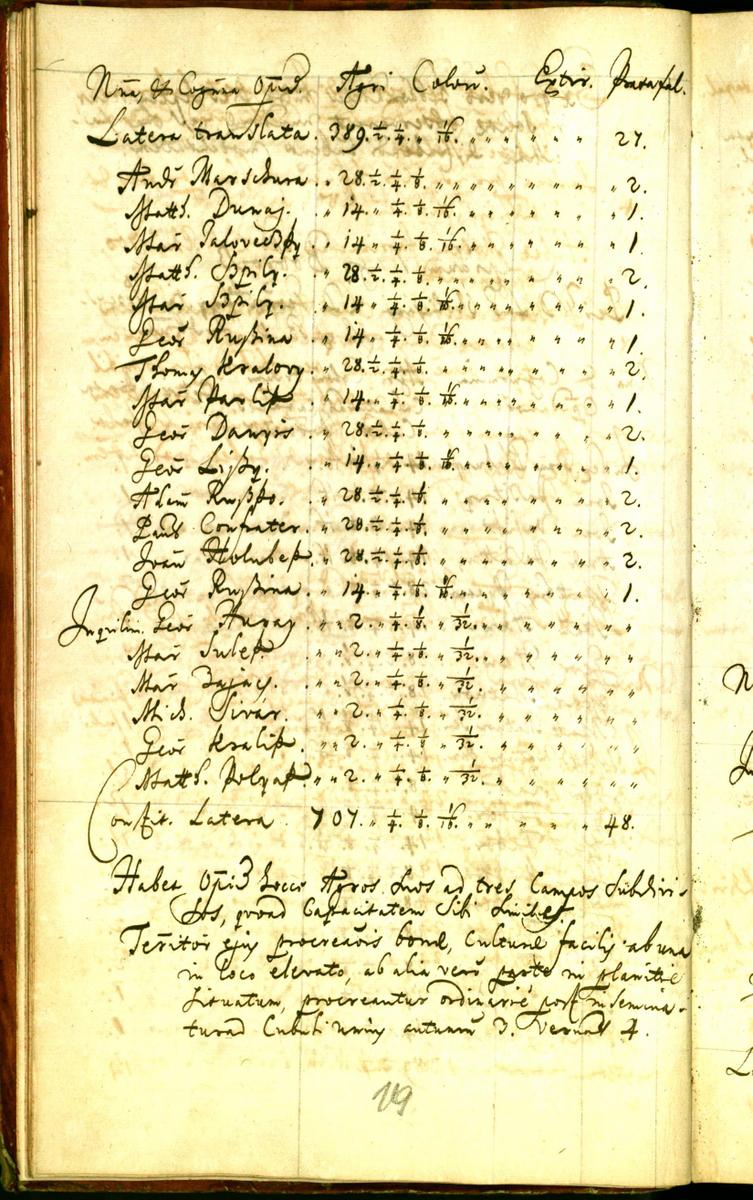 Nna, et Cogna Opid. Agri Colon. Extir. Prata fal.
Latera translata . 389. 1/2. 1/4. " 1/16. " " " " " 27.
Andr Marschura . " 28. 1/2. 1/4. 1/8. " " " " " " " 2.
Matth. Dunaj . " 14. " 1/4. 1/8. 1/16. " " " " " " 1.
Mar Jaloveczky . " 14 " 1/4. 1/8. 1/16. " " " " " " 1
Matth. Szpily . " 28. 1/2. 1/4. 1/8. " " " " " " " 2
Mar Szpily . " 14 " 1/4. 1/8. 1/16. " " " " " " 1.
Geor Rusina . " 14 " 1/4. 1/8. 1/16. " " " " " " 1
Thomas Kralovy . " 28. 1/2. 1/4. 1/8. " " " " " " " 2.
Mar Pavlik . " 14. " 1/4. 1/8. 1/16. " " " " " " 1.
Geor Danyis . " 28. 1/2. 1/4. 1/8. " " " " " " " 2.
Geor Liszy . " 14. " 1/4. 1/8. 1/16. " " " " " " 1.
Adam . " 28. 1/2. 1/4. 1/8. " " " " " " " 2.
Paul Confrater . " 28. 1/2. 1/4. 1/8. " " " " " " " 2.
Joan Holubek . " 28. 1/2. 1/4. 1/8. " " " " " " " 2.
Geor Rusina . " 14. " 1/4. 1/8. 1/16. " " " " " " 1.
Inquilin. Geor . " " 2. " 1/4. 1/8. " 1/32. " " " " " "
Mar Sulek . " " 2. " 1/4. 1/8. " 1/32. " " " " " "
Mar Zajacz . " " 2. " 1/4. 1/8. " 1/32. " " " " " "
Mich. Sivar . " " 2. " 1/4. 1/8. " 1/32. " " " " " "
Geor Kralik . " " 2. " 1/4. 1/8. " 1/32. " " " " " "
Matth. Polyak . " " 2. " 1/4. 1/8. " 1/32. " " " " " "
Constit. Latera . 707. " 1/4. 1/8. 1/16. " " " " " 48.
Habet Opid hocce Agros suos ad tres Campos Subdivi-
sos, quoad Capacitatem Sibi similes
Territor ejus procreaois bonae, Culturae facilis ab una
in loco elevato, ab alia vero parte in planitie
situatum, procreantur ordinarie post insemina-
turad Cubuli unius autumn 3. vernal 4.
119